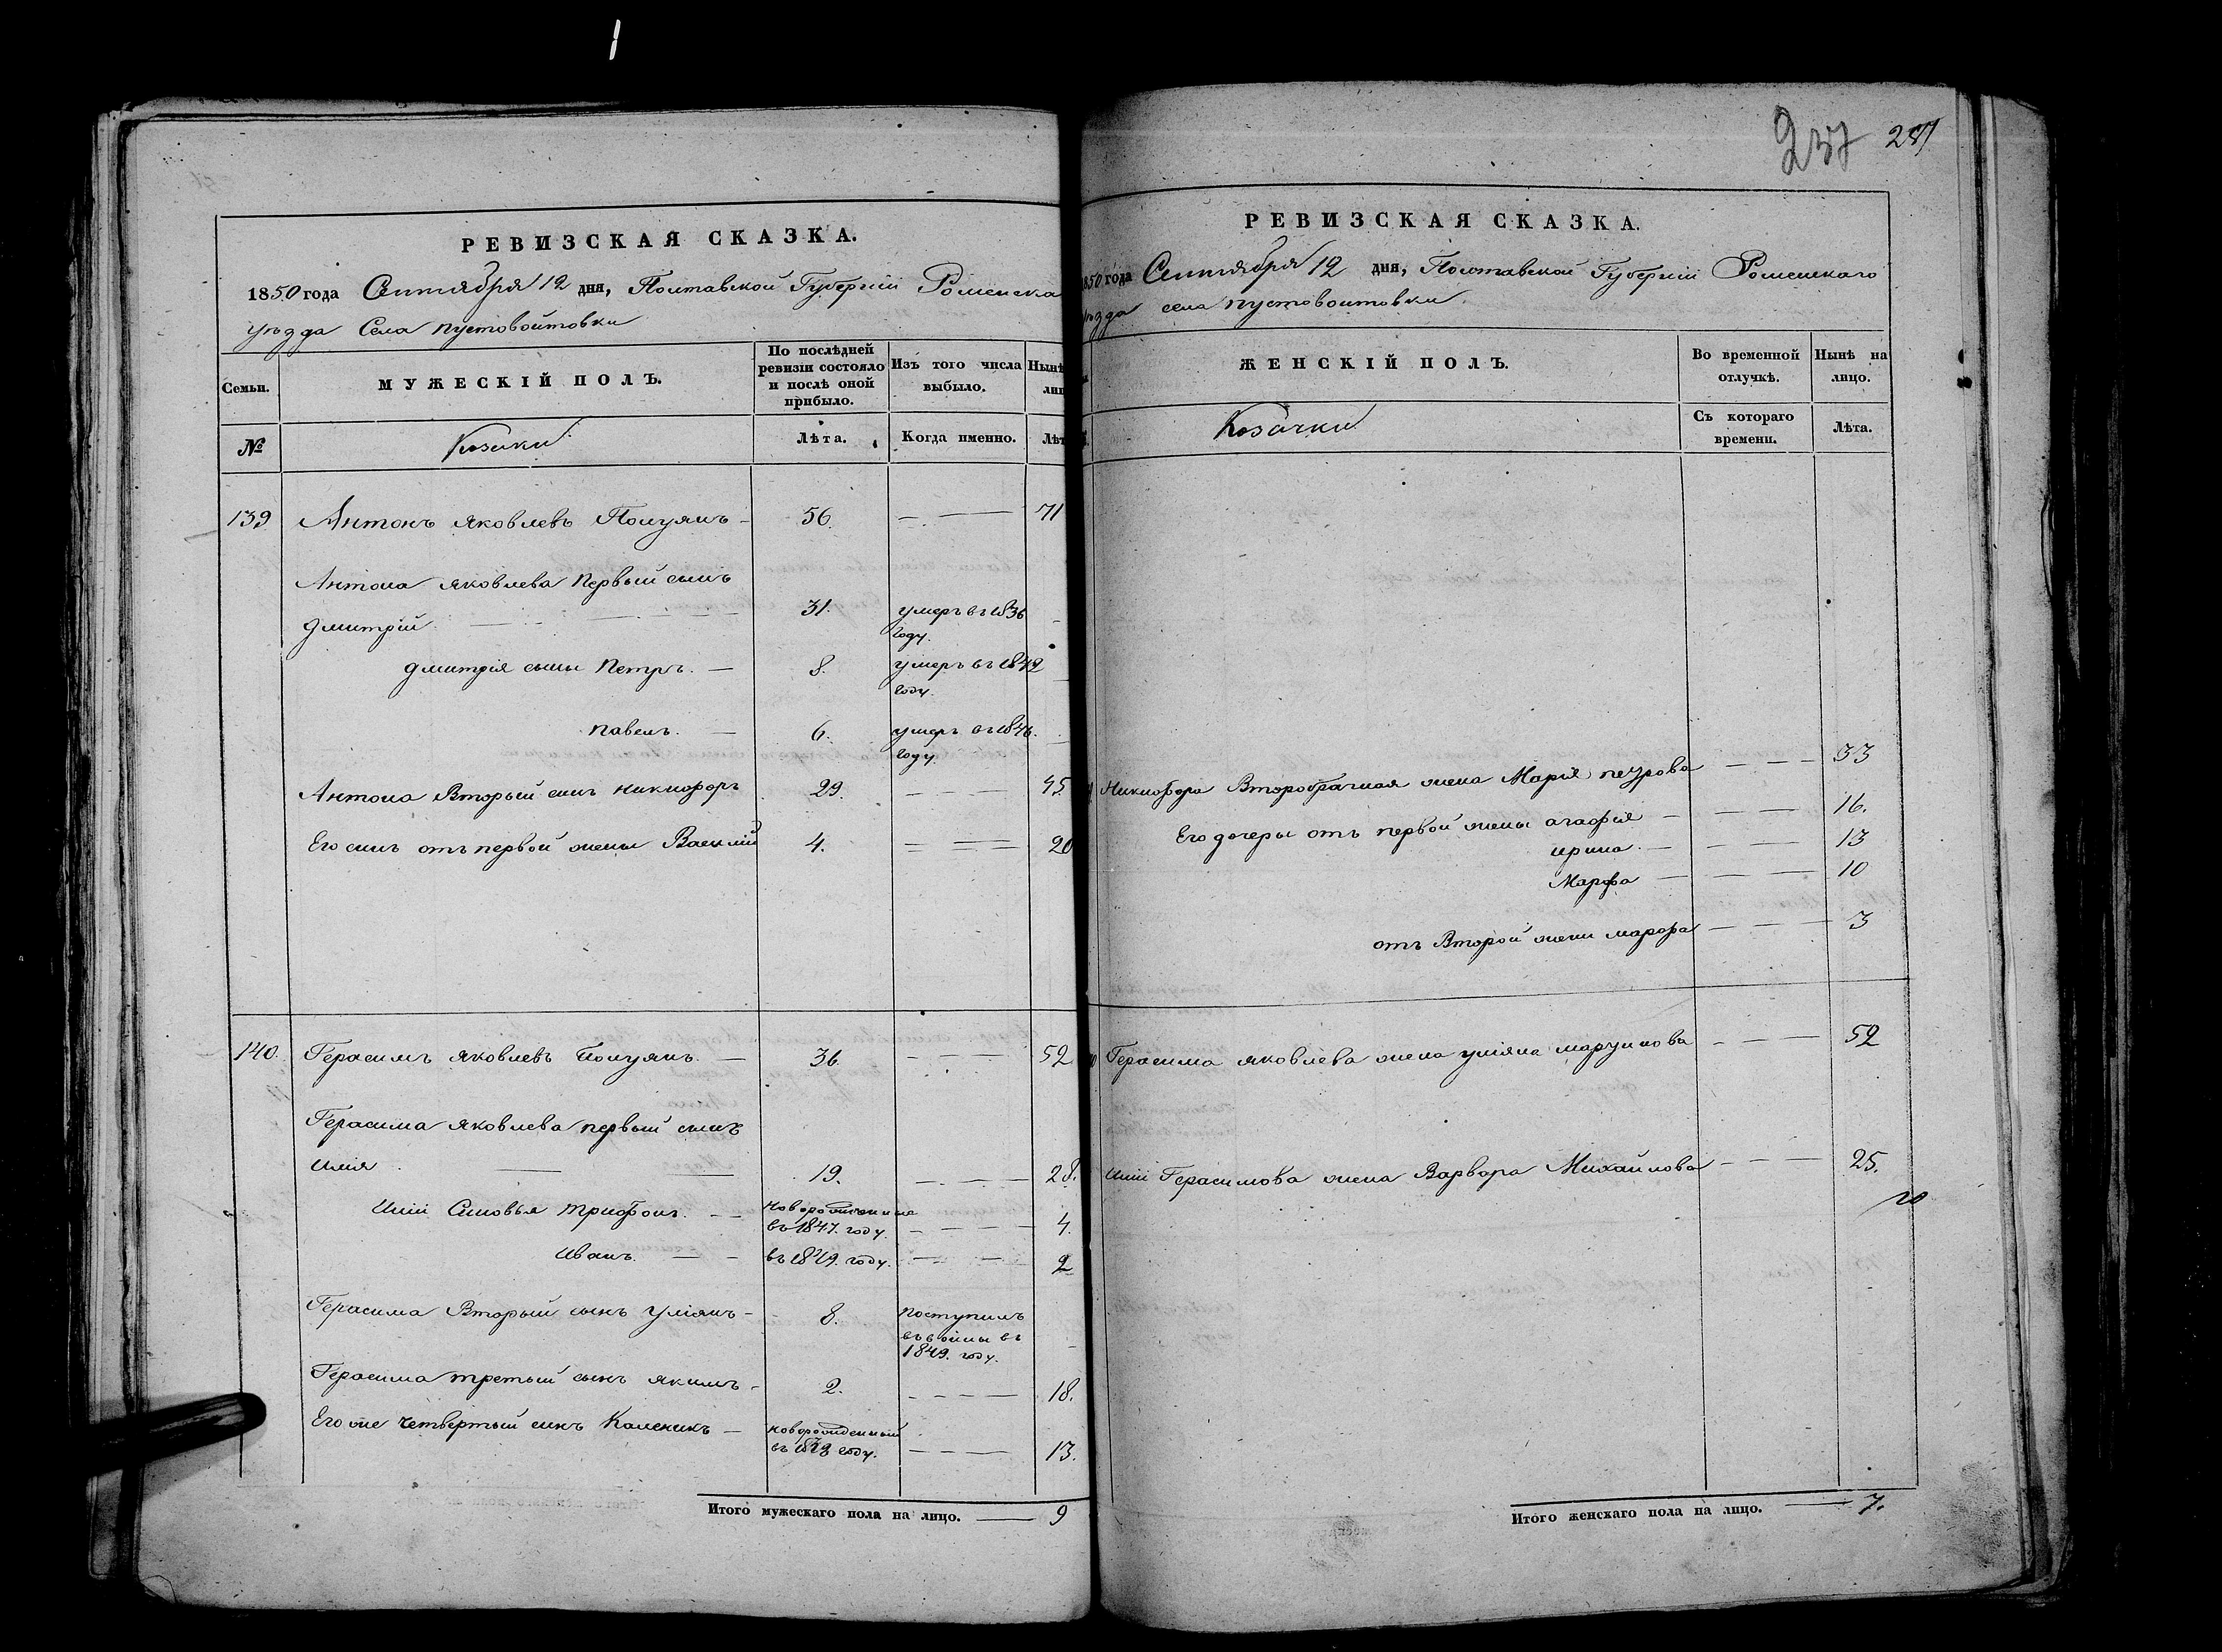 237 287
РЕВИЗСКАЯ СКАЗКА.
1850 года Сентября 12 дня, Полтавской Губерніи Роменска
уѣзда Села пустовойтовки
Семьи.
МУЖЕСКІЙ ПОЛЪ.
По послѣдней ревизіи состояло и послѣ оной прибыло.
Изъ того числа выбыло.
Нынѣ
лиц
№
Козаки
Лѣта.
Когда именно.
Лѣт
139 Антонъ Яковлевъ Полуянъ — 56. — — 71
Антона Яковлева Первый сынъ
дмитрій — — 31. умеръ въ 1836
году.
дмитрія сыны Петръ. — 8. умеръ въ 1849
году.
павелъ. — 6. умеръ въ 1846.
году.
Антона Вторый сынъ никифоръ 29. — — — 45.
Его сынъ отъ первой жены Василій 4. — — — 20
140. Герасимъ Яковлевъ Полуянъ. — 36. — — — 52
Герасима Яковлева первый сынъ
илія — — 19. — — — 28.
иліи Сыновья трифонъ. — новорожденные
въ 1847. году. — — — 4.
иванъ. — — въ 1849. году. — — — 2
Герасима Вторый сынъ уліянъ — 8. поступилъ
въ воины въ
1849. году.
Герасима третьий сынъ якимъ — 2. — — — 18.
Его же четвертый сынъ Каленикъ — новорожденный
въ году. — — — 13.
Итого мужескаго пола на лицо. — 9
РЕВИЗСКАЯ СКАЗКА.
1850 года Сентября 12 дня, Полтавской Губерніи Роменскаго
уѣзда села пустовоитовки.
ЖЕНСКІЙ ПОЛЪ.
Во временной отлучкѣ.
Нынѣ на лицо.
Козачки
Съ котораго времени.
Лѣта.
Никифора Второбрачная жена Марія петрова — — — 33
Его дочеры отъ первой жены агафія — — — 16.
ирина. — — — 13
Марфа — — — 10
отъ Второй жены марфа — — — 3
Герасима яковлева жена уліяна марунова — — — 52
иліи Герасимова жена Варвара Михайлова — — — 25.
Итого женскаго пола на лицо. — 7.